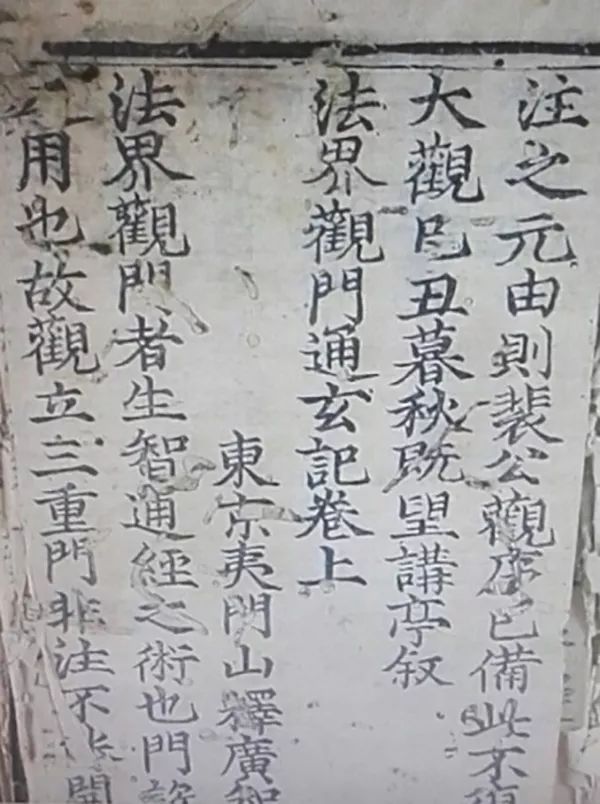 注之元由則裴公觀序已備此不復
大觀已丑暮秋既望講亭叙
法界觀門通玄記卷上
東京夷門山釋廣智
法界觀門者生智通經之術也門詮
用也故觀立三重門非注不能開